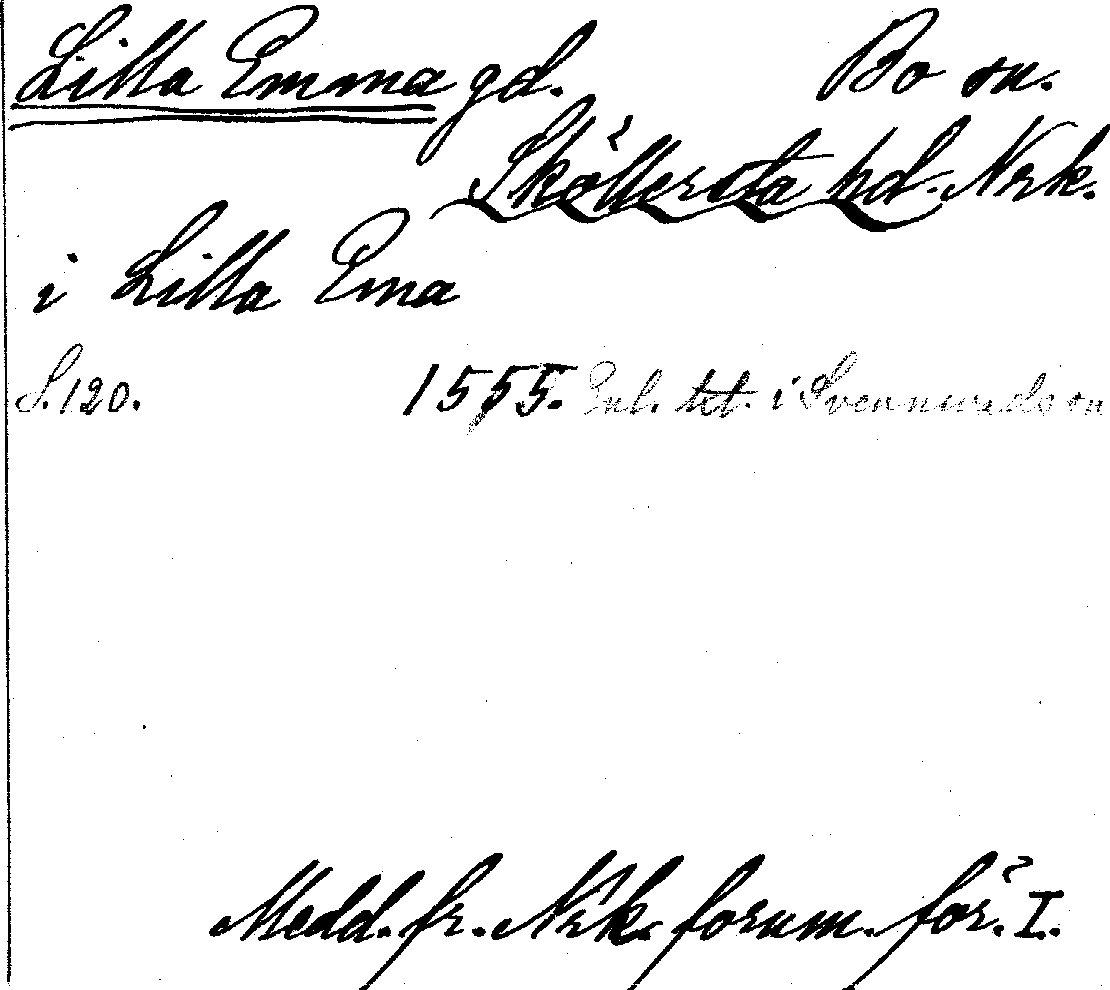 Lilla Emma gd. Bo sn.
Sköllersta hd. Nrk.
i Lilla Ema
S. 120. 1555. Enl. tct. i Svennevads sn
Medd. fr. Nrk. fornm. för. I.